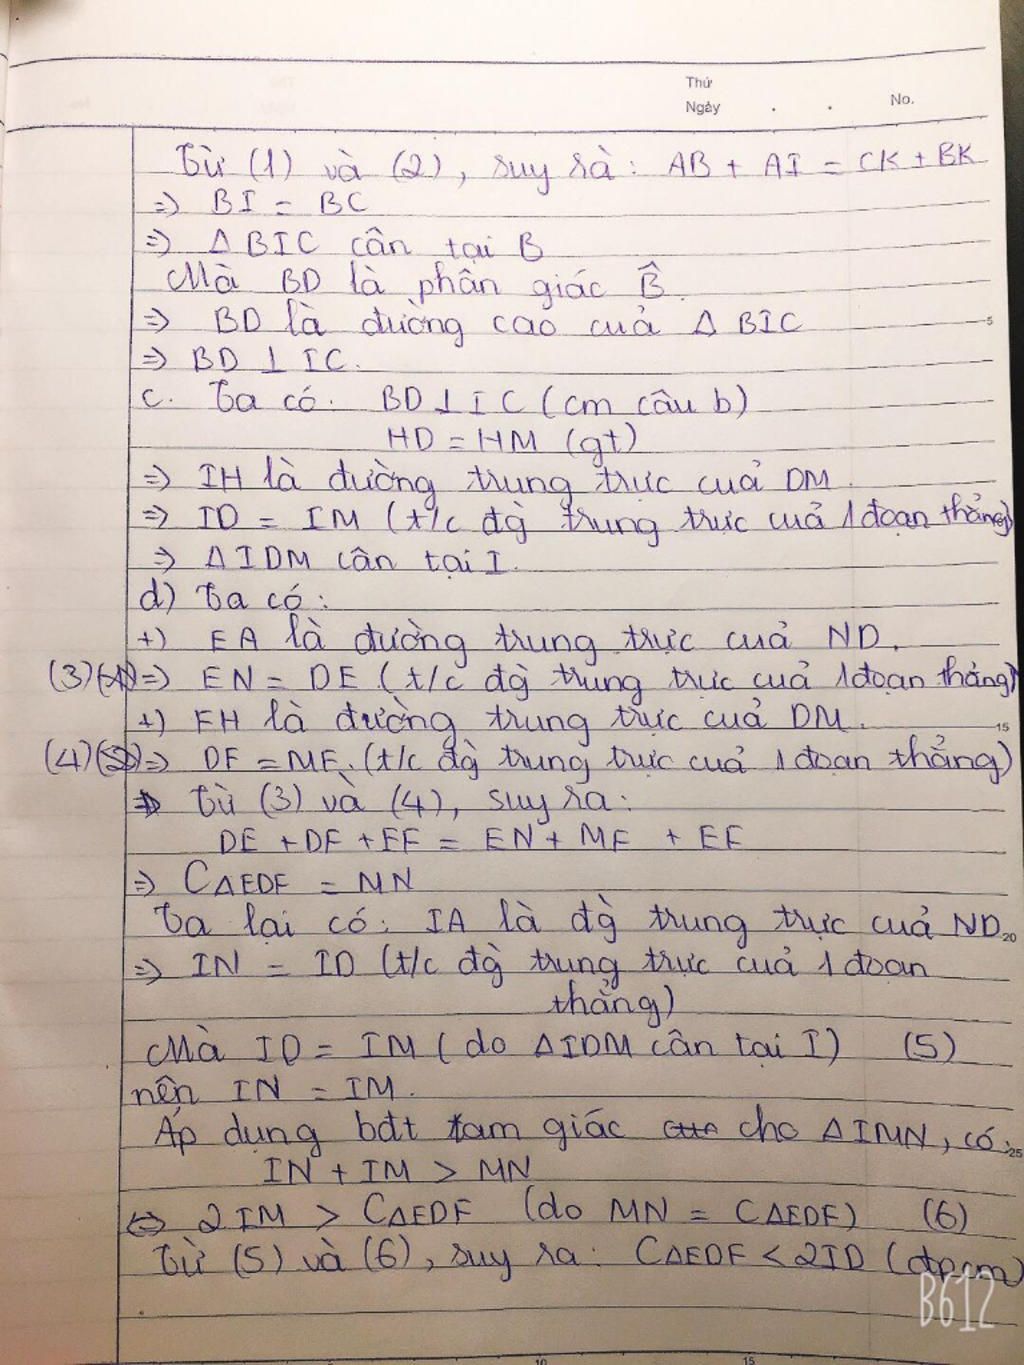 Thứ
Ngày . . No.
Từ (1) và (2), suy rà: AB + AI = CK + BK
=> BI = BC
=> Δ BIC cân tại B
Mà BD là phân giác B̂.
=> BD là đường cao của Δ BIC
5
=> BD ⊥ IC.
c. Ta có. BD ⊥ IC (cm câu b)
HD = HM (gt)
=> IH là đường trung trực của DM.
=> ID = IM (t/c đg̀ trung trực của 1 đoạn thẳng)
=> Δ IDM cân tại I.
d) Ta có:
+) EA là đường trung trực của ND.
(3) => EN = DE (t/c đg̀ trung trực của 1 đoạn thẳng)
+) FH là đường trung trực của DM.
15
(4) => DF = MF. (t/c đg̀ trung trực của 1 đoạn thẳng)
Từ (3) và (4), suy ra:
DE + DF + EF = EN + MF + EF
=> CΔEDF = MN
Ta lại có: IA là đg̀ trung trực của ND.
20
=> IN = ID (t/c đg̀ trung trực của 1 đoạn
thẳng)
Mà ID = IM (do ΔIDM cân tại I) (5)
nên IN = IM.
Áp dụng bđt tam giác cho ΔIMN, có:
25
IN + IM > MN
<=> 2IM > CΔEDF (do MN = CΔEDF) (6)
Từ (5) và (6), suy ra: CΔEDF < 2ID (đpcm)
B612
10 15